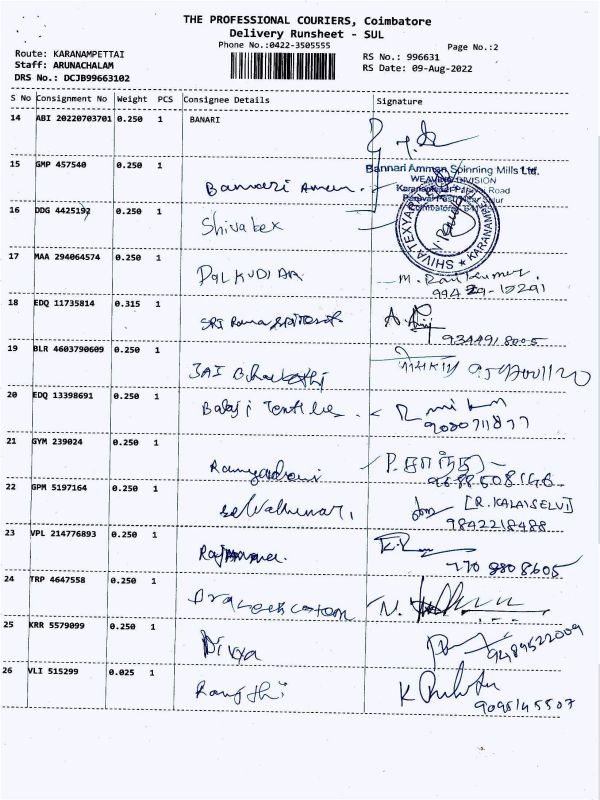 THE PROFESSIONAL COURIERS, Coimbatore
Delivery Runsheet - SUL
Phone No.:0422-3505555
Page No.:2
Route: KARANAMPETTAI
RS No.: 996631
Staff: ARUNACHALAM
RS Date: 09-Aug-2022
DRS No.: DCJB99663102
S No Consignment No Weight PCS Consignee Details Signature
14 ABI 20220703701 0.250 1 BANARI
15 GMP 457540 0.250 1 Bannari Amman
Bannari Amman Spinning Mills Ltd.
WEAVING DIVISION
16 DDG 4425192 0.250 1 Shivatex
SHIVA TEXYARN KARANAMPET
17 MAA 294064574 0.250 1 PALKUDIAR
18 EDQ 11735814 0.315 1 SRI Rama
19 BLR 4603790609 0.250 1 JAI Bharathi
20 EDQ 13398691 0.250 1 Balaji Textiles
9080711877
21 GYM 239024 0.250 1
22 GPM 5197164 0.250 1 [R. KALAISELVI]
9842218488
23 VPL 214776893 0.250 1
770 8808605
24 TRP 4647558 0.250 1
25 KRR 5579099 0.250 1 Divya
9489522009
26 VLI 515299 0.025 1
9098145507